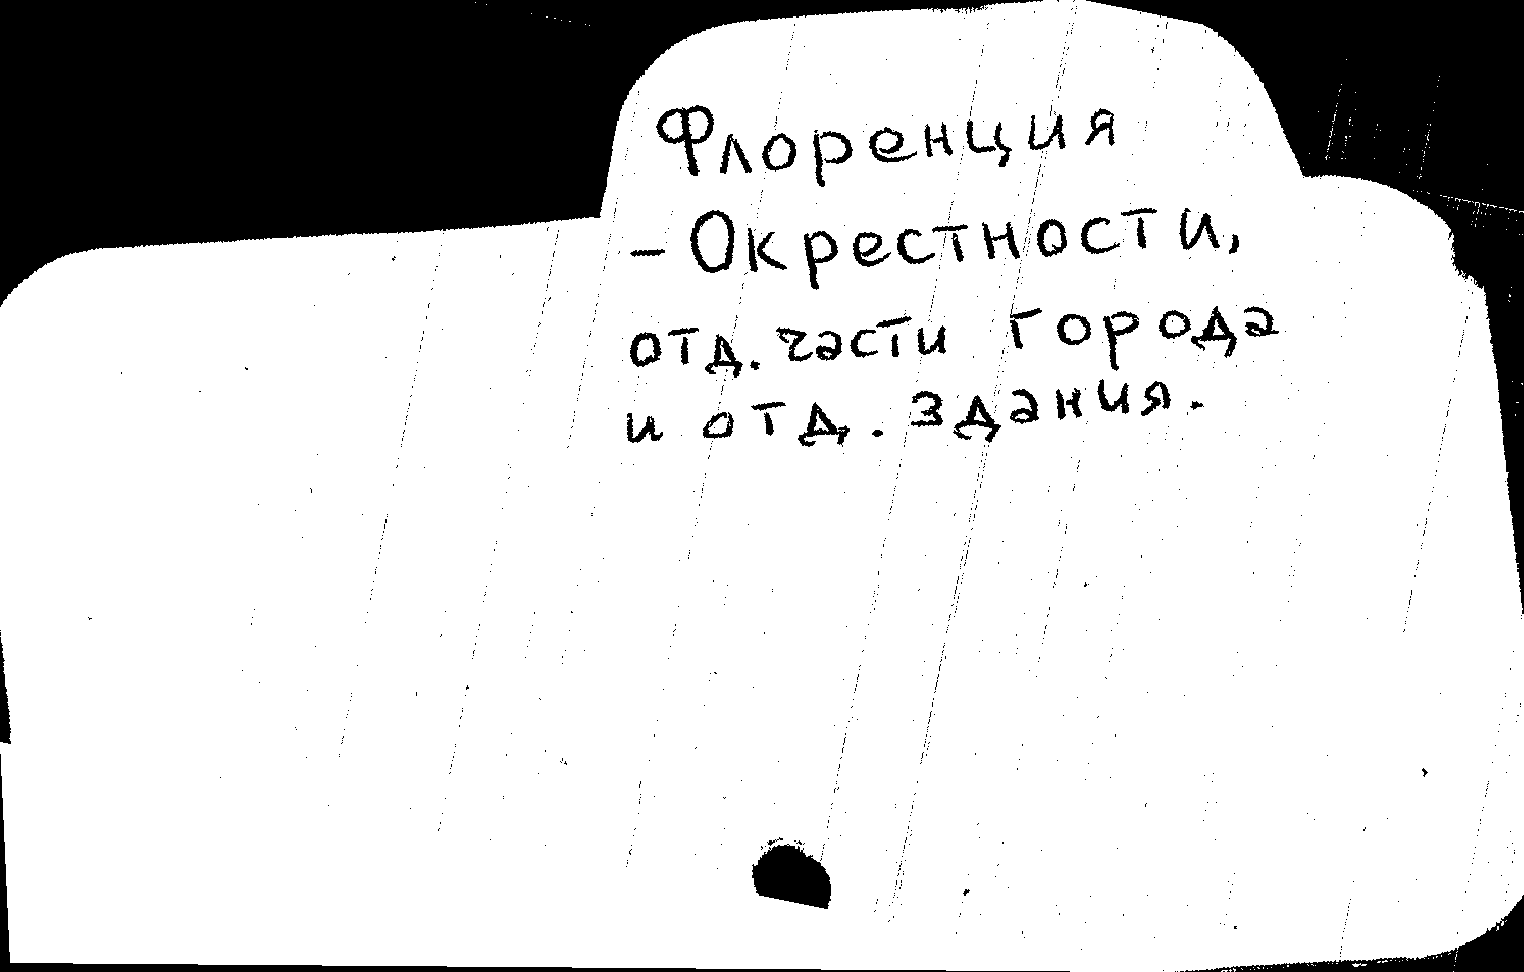 Флоренция
- Окрестности,
отд. части города
и отд. здания.